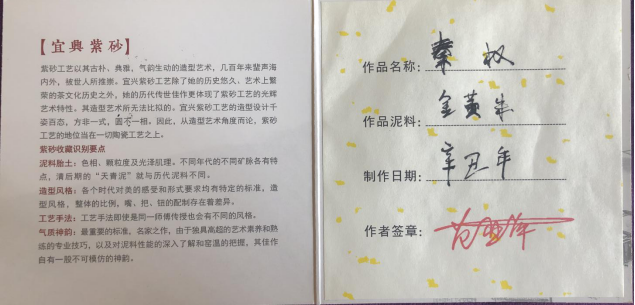 【宜興紫砂】
紫砂工艺以其古朴、典雅，气韵生动的造型艺术，几百年来蜚声海
内外，被世人所推崇。宜兴紫砂工艺除了她的历史悠久、艺术上繁
荣的茶文化历史之外，她的历代传世佳作更体现了紫砂工艺的光辉
艺术特性。其造型艺术所无法比拟的。宜兴紫砂工艺的造型设计千
姿百态，方非一式，圆不一相。因此，从造型艺术角度而论，紫砂
工艺的地位当在一切陶瓷工艺之上。
紫砂收藏识别要点
泥料胎土：色相，颗粒度及光泽肌理。不同年代的不同矿脉各有特
点，清后期的“天青泥”就与历代泥料不同。
造型风格：各个时代对美的感受和形式要求均有特定的标准，造
型风格，整体的比例，嘴、把、钮的配制存在着差异。
工艺手法：工艺手法即使是同一师傅传授也会有不同的风格。
气质神韵：最重要的标准，名家之作，由于独具高超的艺术素养和熟
练的专业技巧，以及对泥料性能的深入了解和窑温的把握，其佳作
自有一股不可模仿的神韵。
作品名称：秦权
作品泥料：金黄
制作日期：辛丑年
作者签章：